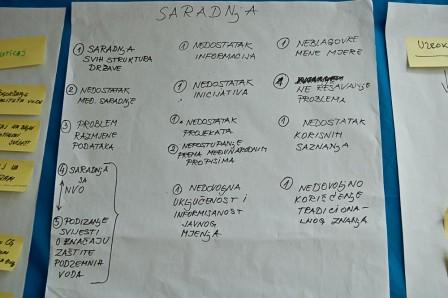 SARADNJA
① SARADNJA
SVIH STRUKTURA
DRŽAVE
② NEDOSTATAK
MEĐ. SARADNJE
③ PROBLEM
RAZMJENE
PODATAKA
④ SARADNJA
SA
NVO
⑤ PODIZANJE
SVIJESTI
O ZNAČAJU
ZAŠTITE
PODZEMNIH
VODA
① NEDOSTATAK
INFORMACIJA
① NEDOSTATAK
INICIJATIVA
① NEDOSTATAK
PROJEKATA
② NEPOSTUPANJE
PREMA MEĐUNARODNIM
PROPISIMA
① NEDOVOLJNA
UKLJUČENOST I
INFORMISANOST
JAVNOG
MJENJA
① NEBLAGOVRE
MENE MJERE
①
NE REŠAVANJE
PROBLEMA
① NEDOSTATAK
KORISNIH
SAZNANJA
① NEDOVOLJNO
KORIĆENJE
TRADICIONA-
LNOG ZNANJA
UZROK